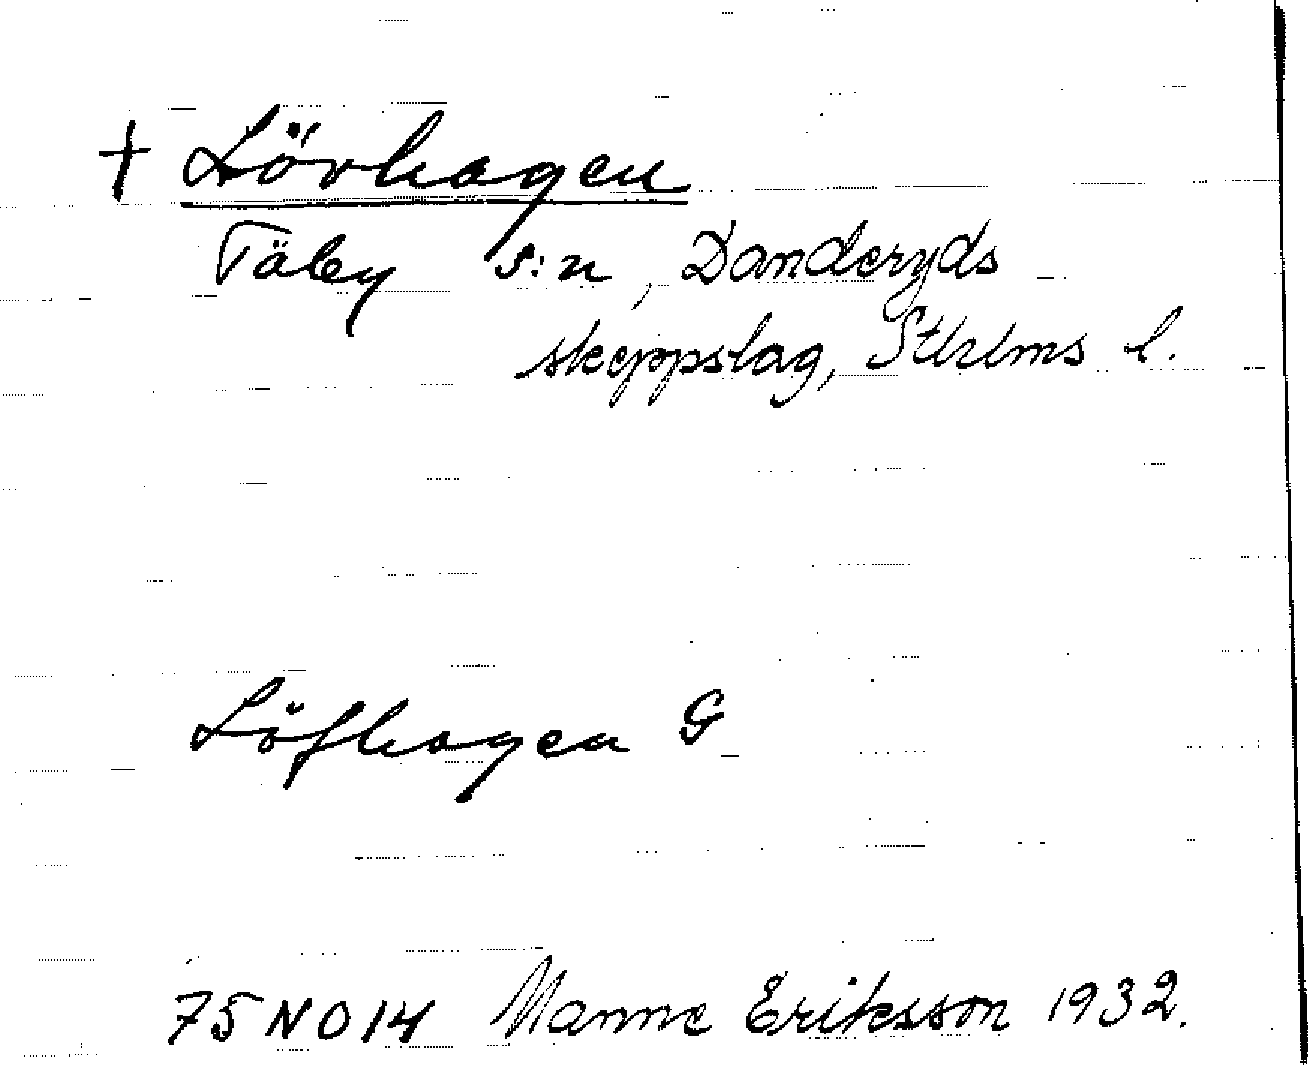 + Lövhagen
Täby s:n, Danderyds
skeppslag, Sthlms l.
Löfhagen G
75 N O 14 Manne Eriksson 1932.